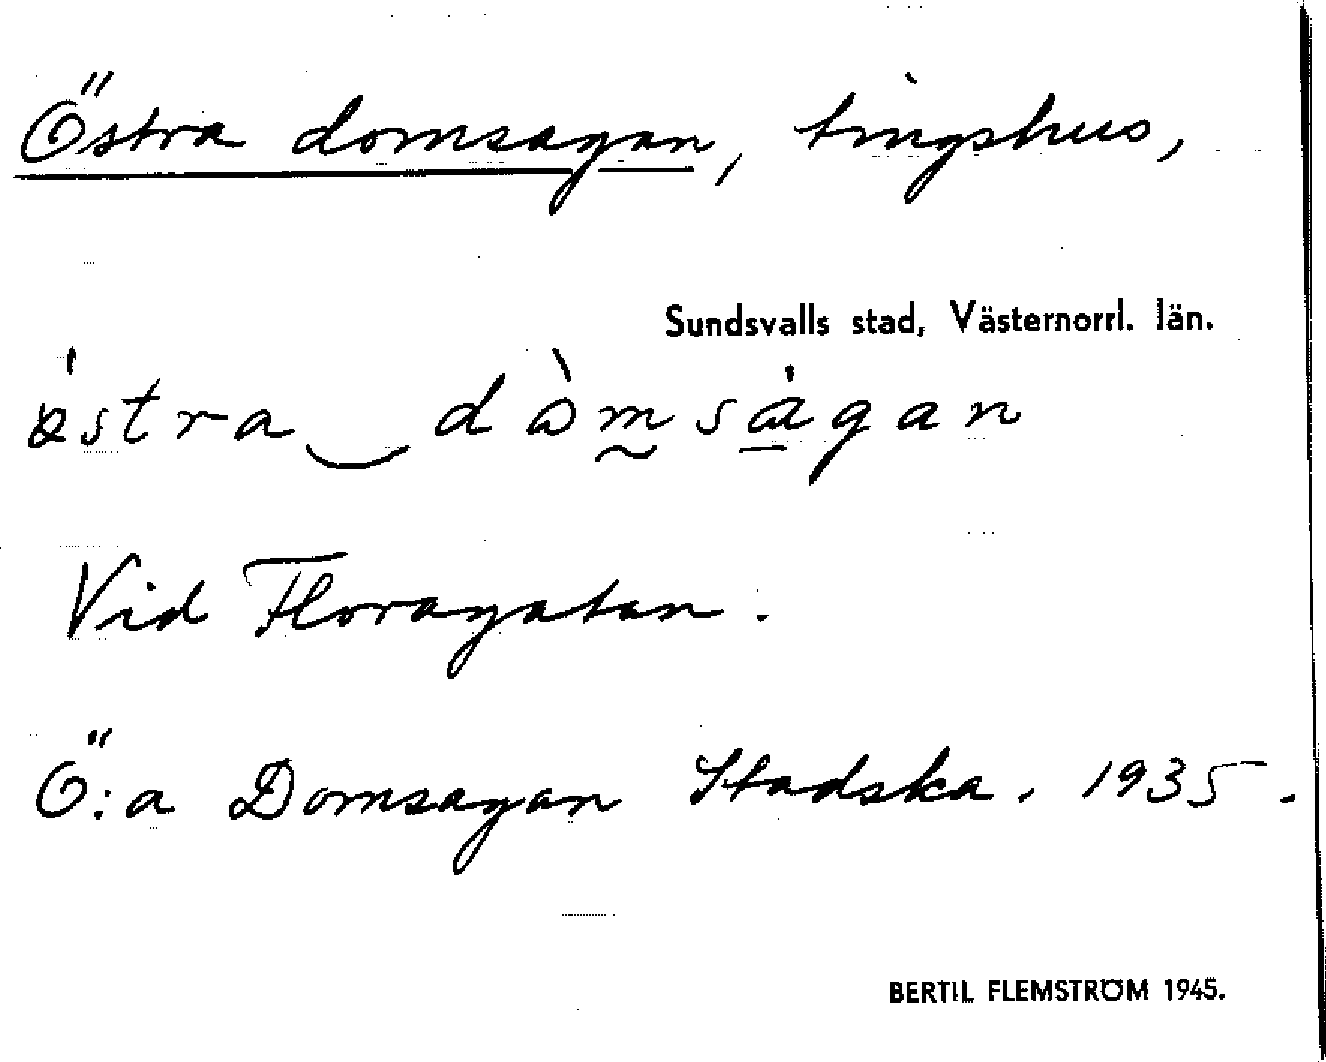 Östra domsagan, tingshus,
Sundsvalls stad, Västernorrl. län.
östra domsagan
Vid Floragatan.
Ö:a Domsagan Stadska. 1935.
BERTIL FLEMSTRÖM 1945.